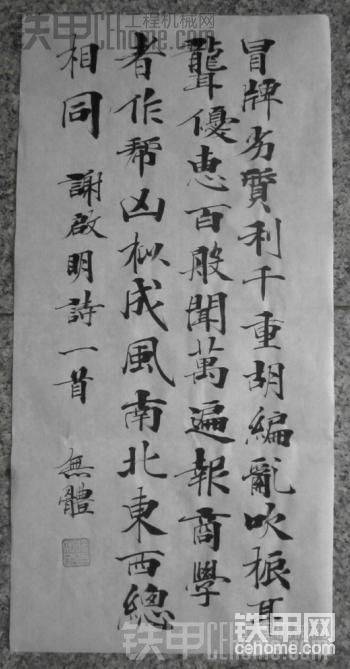 冒牌劣質利千重胡編亂吹振耳
聾優惠百般聞萬遍報商學
者作帮凶似成風南北東西總
相同 謝啟明詩一首 無體
铁甲 工程机械网
CEhome.com
铁甲网
cehome.com